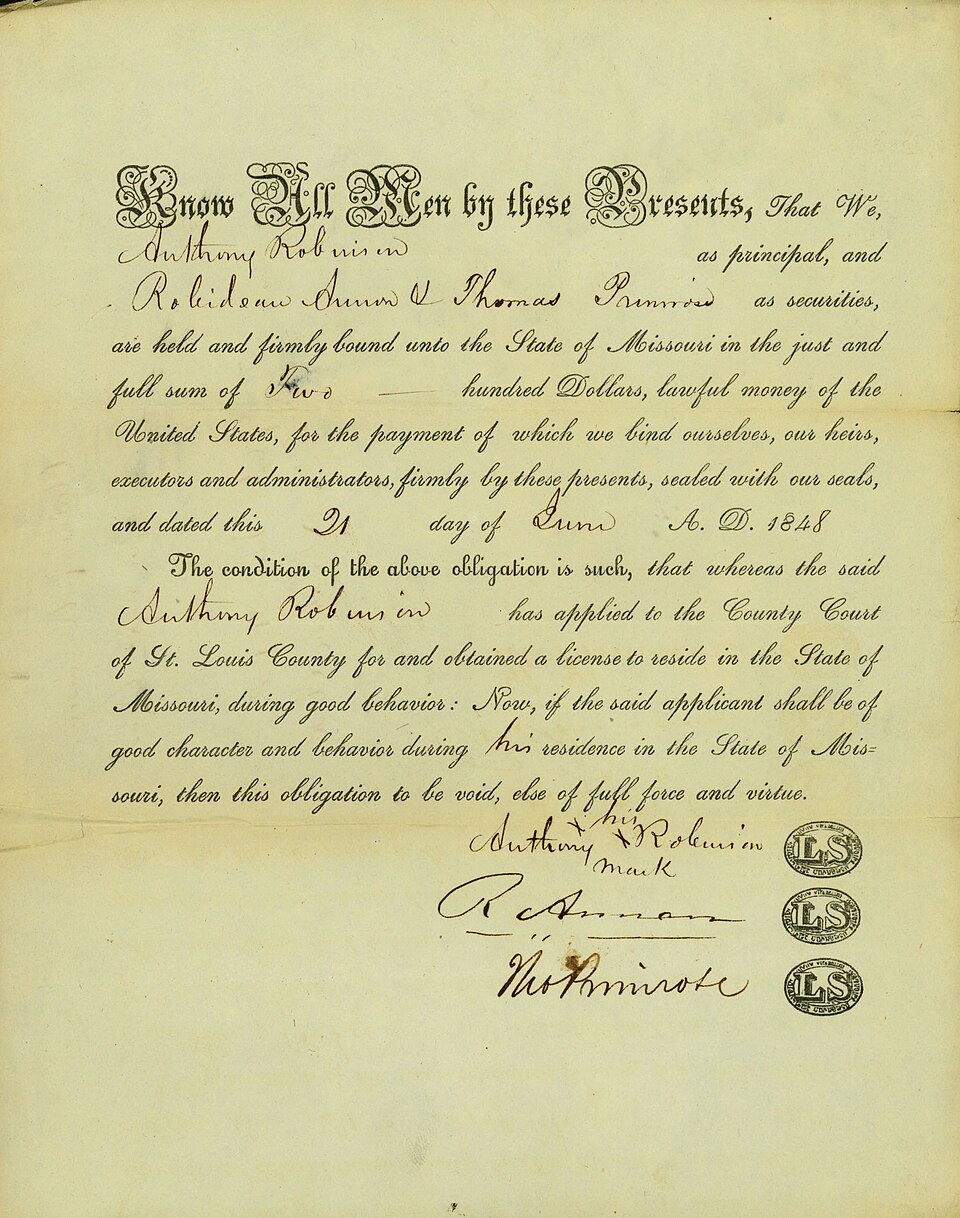 Know All Men by these Presents, That We,
Anthony Robinson as principal, and
Robideau Annan & Thomas Primrose as securities,
are held and firmly bound unto the State of Missouri in the just and
full sum of Two — hundred Dollars, lawful money of the
United States, for the payment of which we bind ourselves, our heirs,
executors and administrators, firmly by these presents, sealed with our seals,
and dated this 21 day of June A. D. 1848
The condition of the above obligation is such, that whereas the said
Anthony Robinson has applied to the County Court
of St. Louis County for and obtained a license to reside in the State of
Missouri, during good behavior: Now, if the said applicant shall be of
good character and behavior during his residence in the State of Mis=
souri, then this obligation to be void, else of full force and virtue.
his
Anthony x x Robinson LS
mark
R Annan LS
Tho Primrose LS